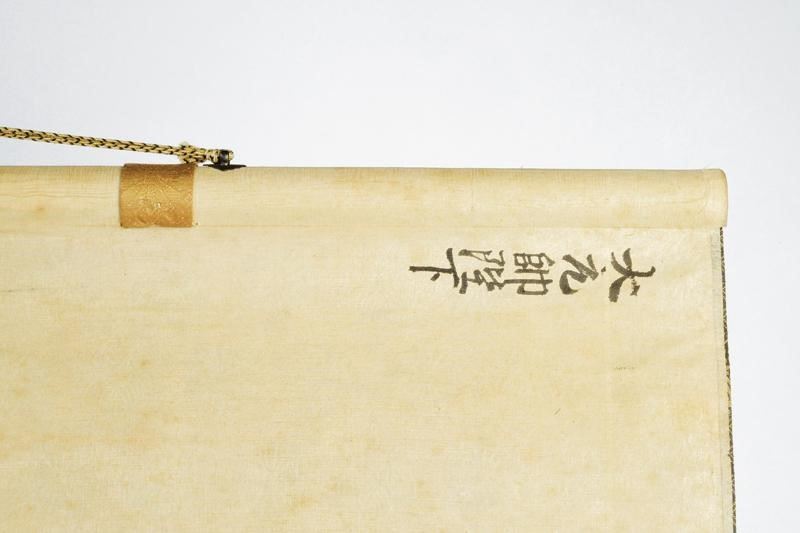 大元帥陛下